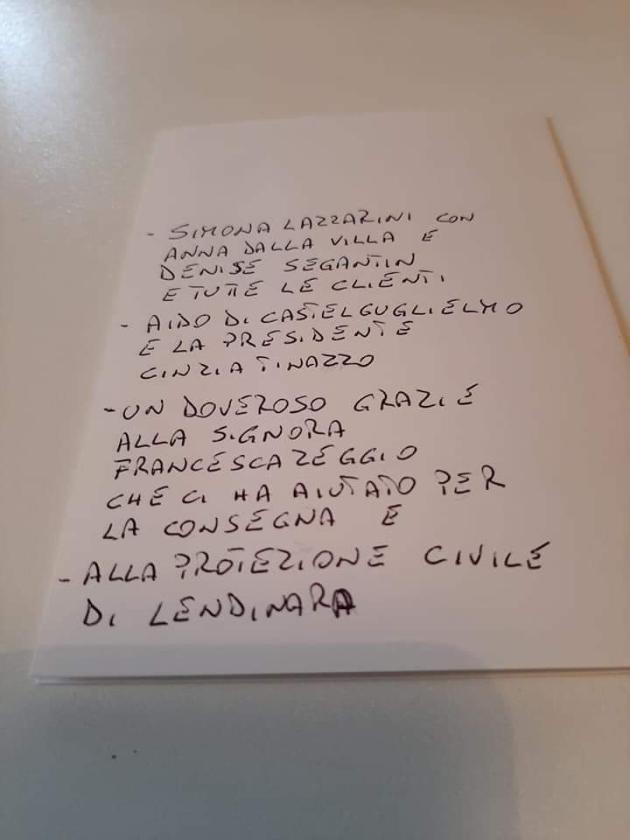 - SIMONA LAZZARINI CON
ANNA DALLA VILLA E
DENISE SEGANTIN
E TUTTE LE CLIENTI
- AIDO DI CASTELGUGLIELMO
E LA PRESIDENTE
CINZIA TINAZZO
- UN DOVEROSO GRAZIE
ALLA SIGNORA
FRANCESCA ZEGGIO
CHE CI HA AIUTATO PER
LA CONSEGNA E
- ALLA PROTEZIONE CIVILE
DI LENDINARA